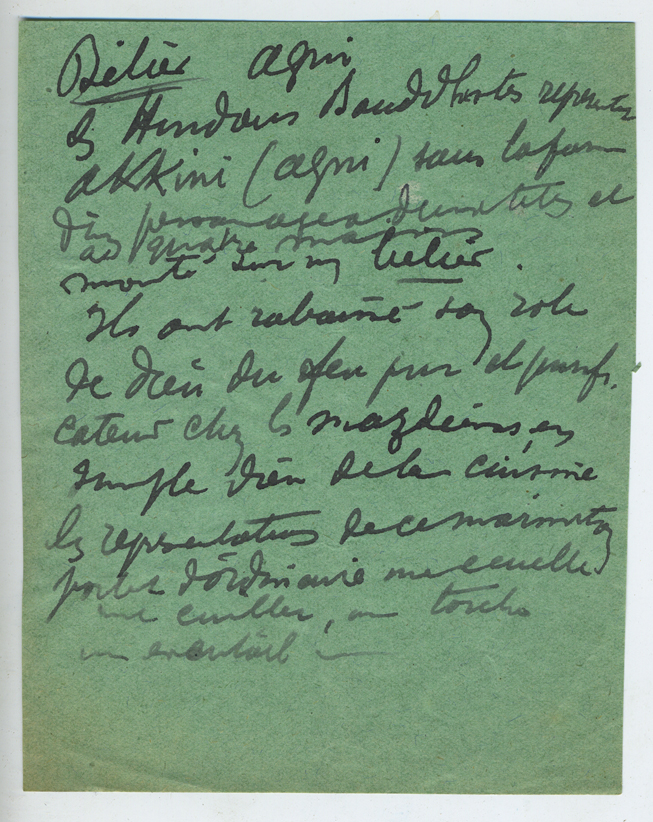 Bélier agni
Les Hindous Bouddhistes représentent
Akkini (agni) sous la forme
d'un personnage a deux têtes et
à quatre mains
monté sur un bélier.
Ils ont rabaissé son rôle
de dieu du feu pur et purifi.
cateur chez les mazdéens, en
simple dieu de la cuisine
les représentations de ce marmiton
portent d'ordinaire une écuelle
une cuiller, une torche
un éventail